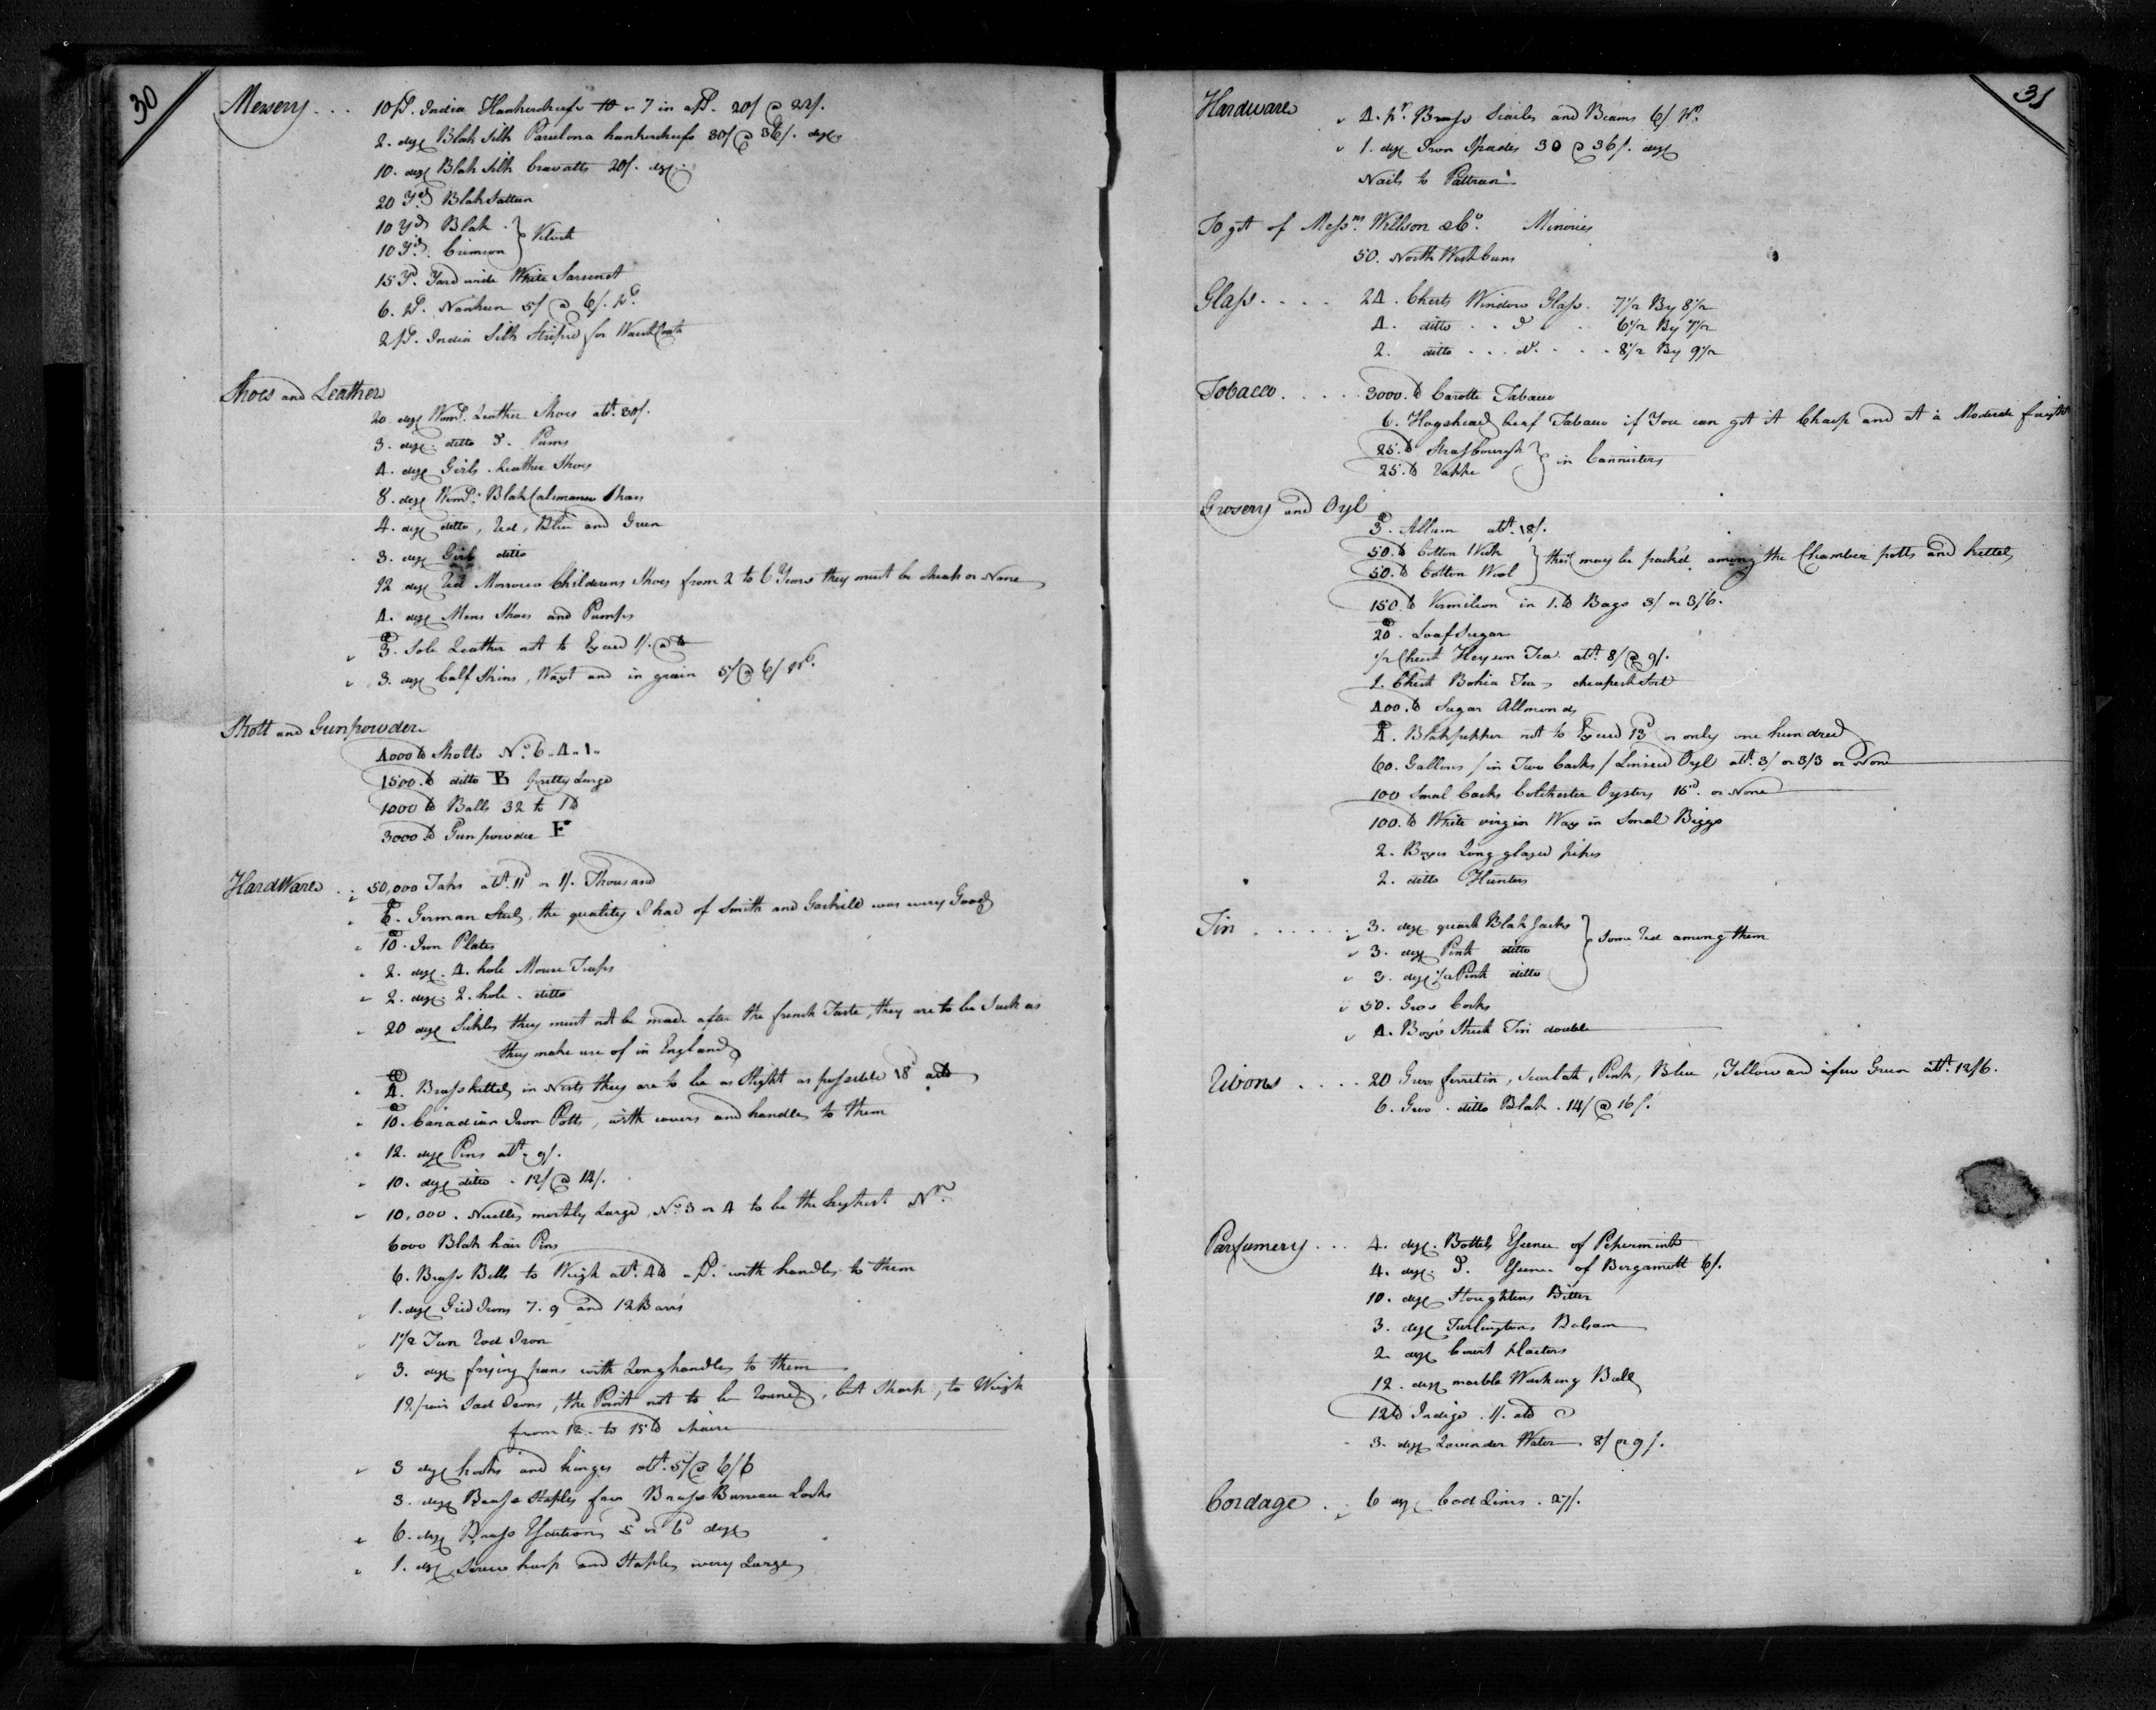 30
Mersery . . . 10 ps. India Hankerchiefs 10 a 7 in a ps. 20/ @ 22/.
2. doz Blak Silk Barcelona hankerchiefs 30/ @ 36/. doz
10. doz Blak Silk Cravatts 20/. doz.
20 Yds Blak Satten
10 Yds Blak }
10 Yds. Crimson } Velvet
15 Yd. Yard wide White Sarsenet
6. ps. Nankeen 5/ @ 6/. ps.
2 ps. India Silk Striped for Waistcoats
Shoes and Leather
20 doz Woms. Leather Shoes att. 30/.
3. doz. ditto do. Pums
4. doz Girls Leather Shoes
8. doz Woms. Blak Calimanco Shoes
4. doz ditto, Red, Blue and Green
3. doz Girls ditto
12 doz Red Morroco Childerens Shoes from 2 to 6 Years they must be cheap or None
4. doz Mens Shoes and Pumps
3. Sole Leather not to Exceed 1/. a lb
3. doz Calf Skins, Waxt and in grain 5/ @ 6/
Shott and Gunpowder
4000 lb Shotts No. 6. 4. 1.
1500. lb ditto B pretty Large
1000 lb Balls 32 to 1 lb
3000 lb Gunpowder F
HardWare . . 50,000 Taks att. 11d or 1/. Thousand
6. German Steel, the quality I had of Smith and was very Good
10. Iron Plates
2. doz. 4. hole Mouse Traps
2. doz. 2. hole. ditto
20 doz Sikles they must not be made after the french Taste, they are to be Such as
they make use of in England
4. Brass kettels in Nests they are to be as Slight as possible 18d a lb
10. Canadian Iron Potts, with covers and handles to them
12. doz Pins att. 9/.
10. doz ditto . 12/ @ 14/.
10,000. Needles mostly Large, No. 3 or 4 to be the highest No.
6000 Blak hair Pins
6. Brass Bells to Weigh att. 4 lb a ps. with handles to them
1. doz Grid Irons 7. 9 and 12 Barrs
1 1/2 Tun Rod Iron
3. doz frying pans with Long handles to them
12 pair Sad Irons, the Point not to be Round, but Sharp, to Weigh
from 12 to 15 lb
3 doz hooks and hinges att. 5/ @ 6/6
3. doz Brass Staples for Brass Bureau Locks
6. doz Brass Escutions 5 or 6d doz
1. doz Screw hasp and Staples very Large
31
Hardware 4. pr. Brass Scailes and Beams 6/ pr.
1. doz Iron Spades 30 @ 36/. doz
Nails to Pattrean
To gtt of Messrs. Willson & Co. Minories
50. North West Guns
Glass . . . . 24. Chests Window Glass. 7 1/2 By 8 1/2
4. ditto . . do . 6 1/2 By 7 1/2
2. ditto . . . do. . . . 8 1/2 By 9 1/2
Tobacco . . . . . 3000. lb Carotte Tabacco
6. Hogshead Leaf Tabacco if You can gtt it Cheap and at a Moderate freight
25. lb Strasbourgh }
25. lb Rappe } in Cannisters
Grosery and Oyl
3. Allum att. 18/.
50. lb Cotton Wick }
50. lb Cotton Wool } this may be packed among the Chamber potts and kettels
150. lb Vermilion in 1. lb Bags 3/ or 3/6.
20. Loaf Sugar
1/2 Chest Heyson Tea. att. 8/ @ 9/.
1. Chest Bohia Tea, cheapest Sort
400. lb Sugar Allmonds
4. Blak pepper not to Exceed 13d or only one hundred
60. Gallons / in Two Casks / Linseed Oyl att. 3/ or 3/3 or None
100 Smal Casks Colchester Oysters 16d. or None
100. lb White virgin Wax in Smal Biggs
2. Boxes Long glazed pipes
2. ditto Hunters
Tin . . . . . . 3. doz quart Blak Jacks }
3. doz Pint ditto } Some Red among them
3. doz 1/2 Pint ditto }
50. Gros Corks
4. Boxes Sheet Tin double
Ribons . . . . 20 Gros ferretin, Scarlatt, Pink, Blue, Yellow and a few Green att. 12/6.
6. Gros. ditto Blak . 14/ @ 16/.
Parfumery . . . 4. doz. Bottels Essence of Peperminth
4. doz. do. Essence of Bergamott 6/.
10. doz Stoughtens Bitter
3. doz Turlingtons Balsam
2. doz Court plasters
12. doz marble Washing Balls
12 lb Indigo . 1/. a lb
3. doz Lavender Water. 8/ or 9/.
Cordage . . 6 doz Cod Lines . 27/.